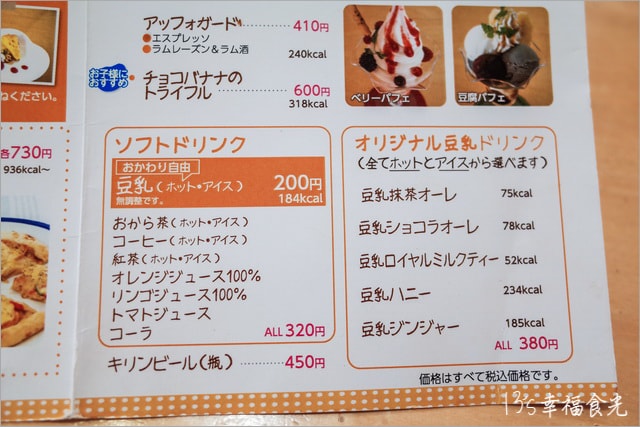 アッフォガード 410円
●エスプレッソ
●ラムレーズン&ラム酒 240kcal
お子様に
おすすめ
チョコバナナの
トライフル 600円
318kcal
ベリーパフェ
豆腐パフェ
ねください。
各730円
936kcal~
ソフトドリンク
おかわり自由
豆乳(ホット・アイス) 200円
無調整です。 184kcal
おから茶(ホット・アイス)
コーヒー(ホット・アイス)
紅茶(ホット・アイス)
オレンジジュース100%
リンゴジュース100%
トマトジュース
コーラ
ALL 320円
キリンビール(瓶) 450円
オリジナル豆乳ドリンク
(全てホットとアイスから選べます)
豆乳抹茶オーレ 75kcal
豆乳ショコラオーレ 78kcal
豆乳ロイヤルミルクティー 52kcal
豆乳ハニー 234kcal
豆乳ジンジャー 185kcal
ALL 380円
価格はすべて税込価格です。
13's幸福食光